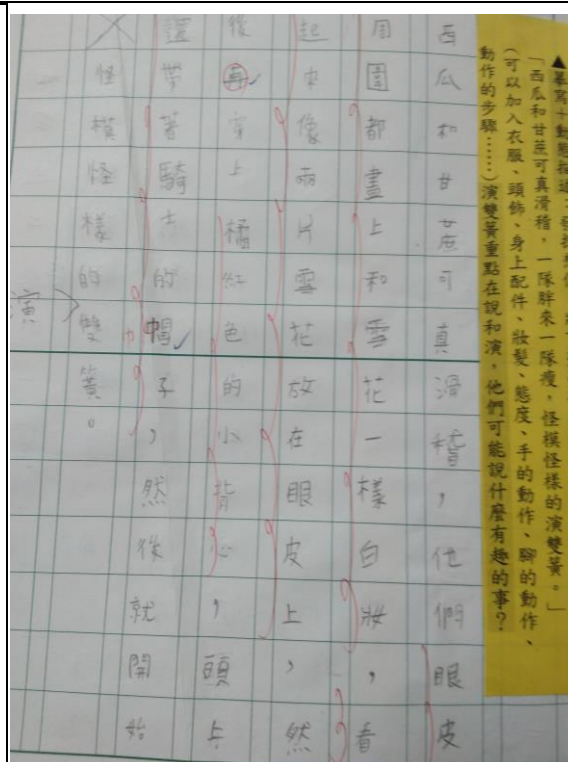 「西瓜和甘蔗可真滑稽，一隊胖來一隊瘦，怪模怪樣的演雙簧。」
（可以加入衣服、頭飾、身上配件、妝髮、態度、手的動作、腳的動作、
動作的步驟……）演雙簧重點在說和演，他們可能說什麼有趣的事？
西瓜和甘蔗可真滑稽，他們眼皮
周圍都畫上和雪花一樣白妝，看
起來像兩片雪花放在眼皮上，然
後再穿上橘紅色的小背心，頭上
還帶著騎士的帽子，然後就開始
怪模怪樣的雙簧。
演